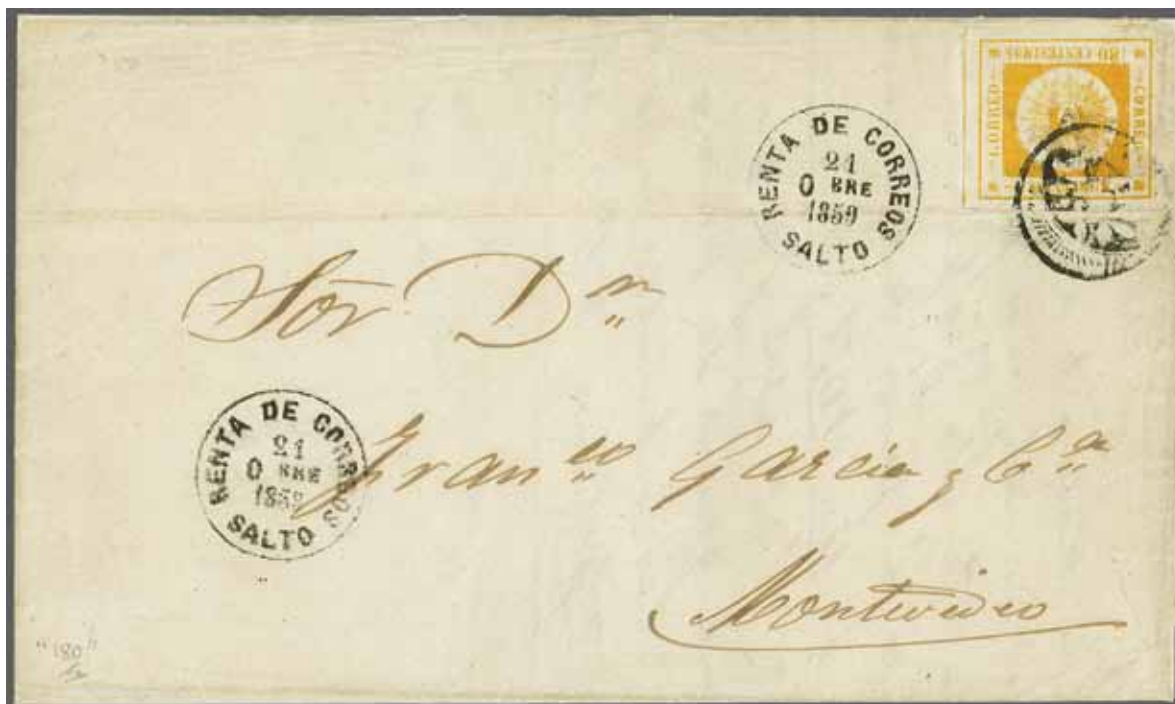 180 CENTESIMOS
CORREO
CORREO
RENTA DE CORREOS
21
0 ENE
1859
SALTO
Sõr Dⁿ
RENTA DE CORREOS
21
0 ENE
1859
SALTO
Franᶜᵒ Garcia y Cᵃ
Montevideo
"180"